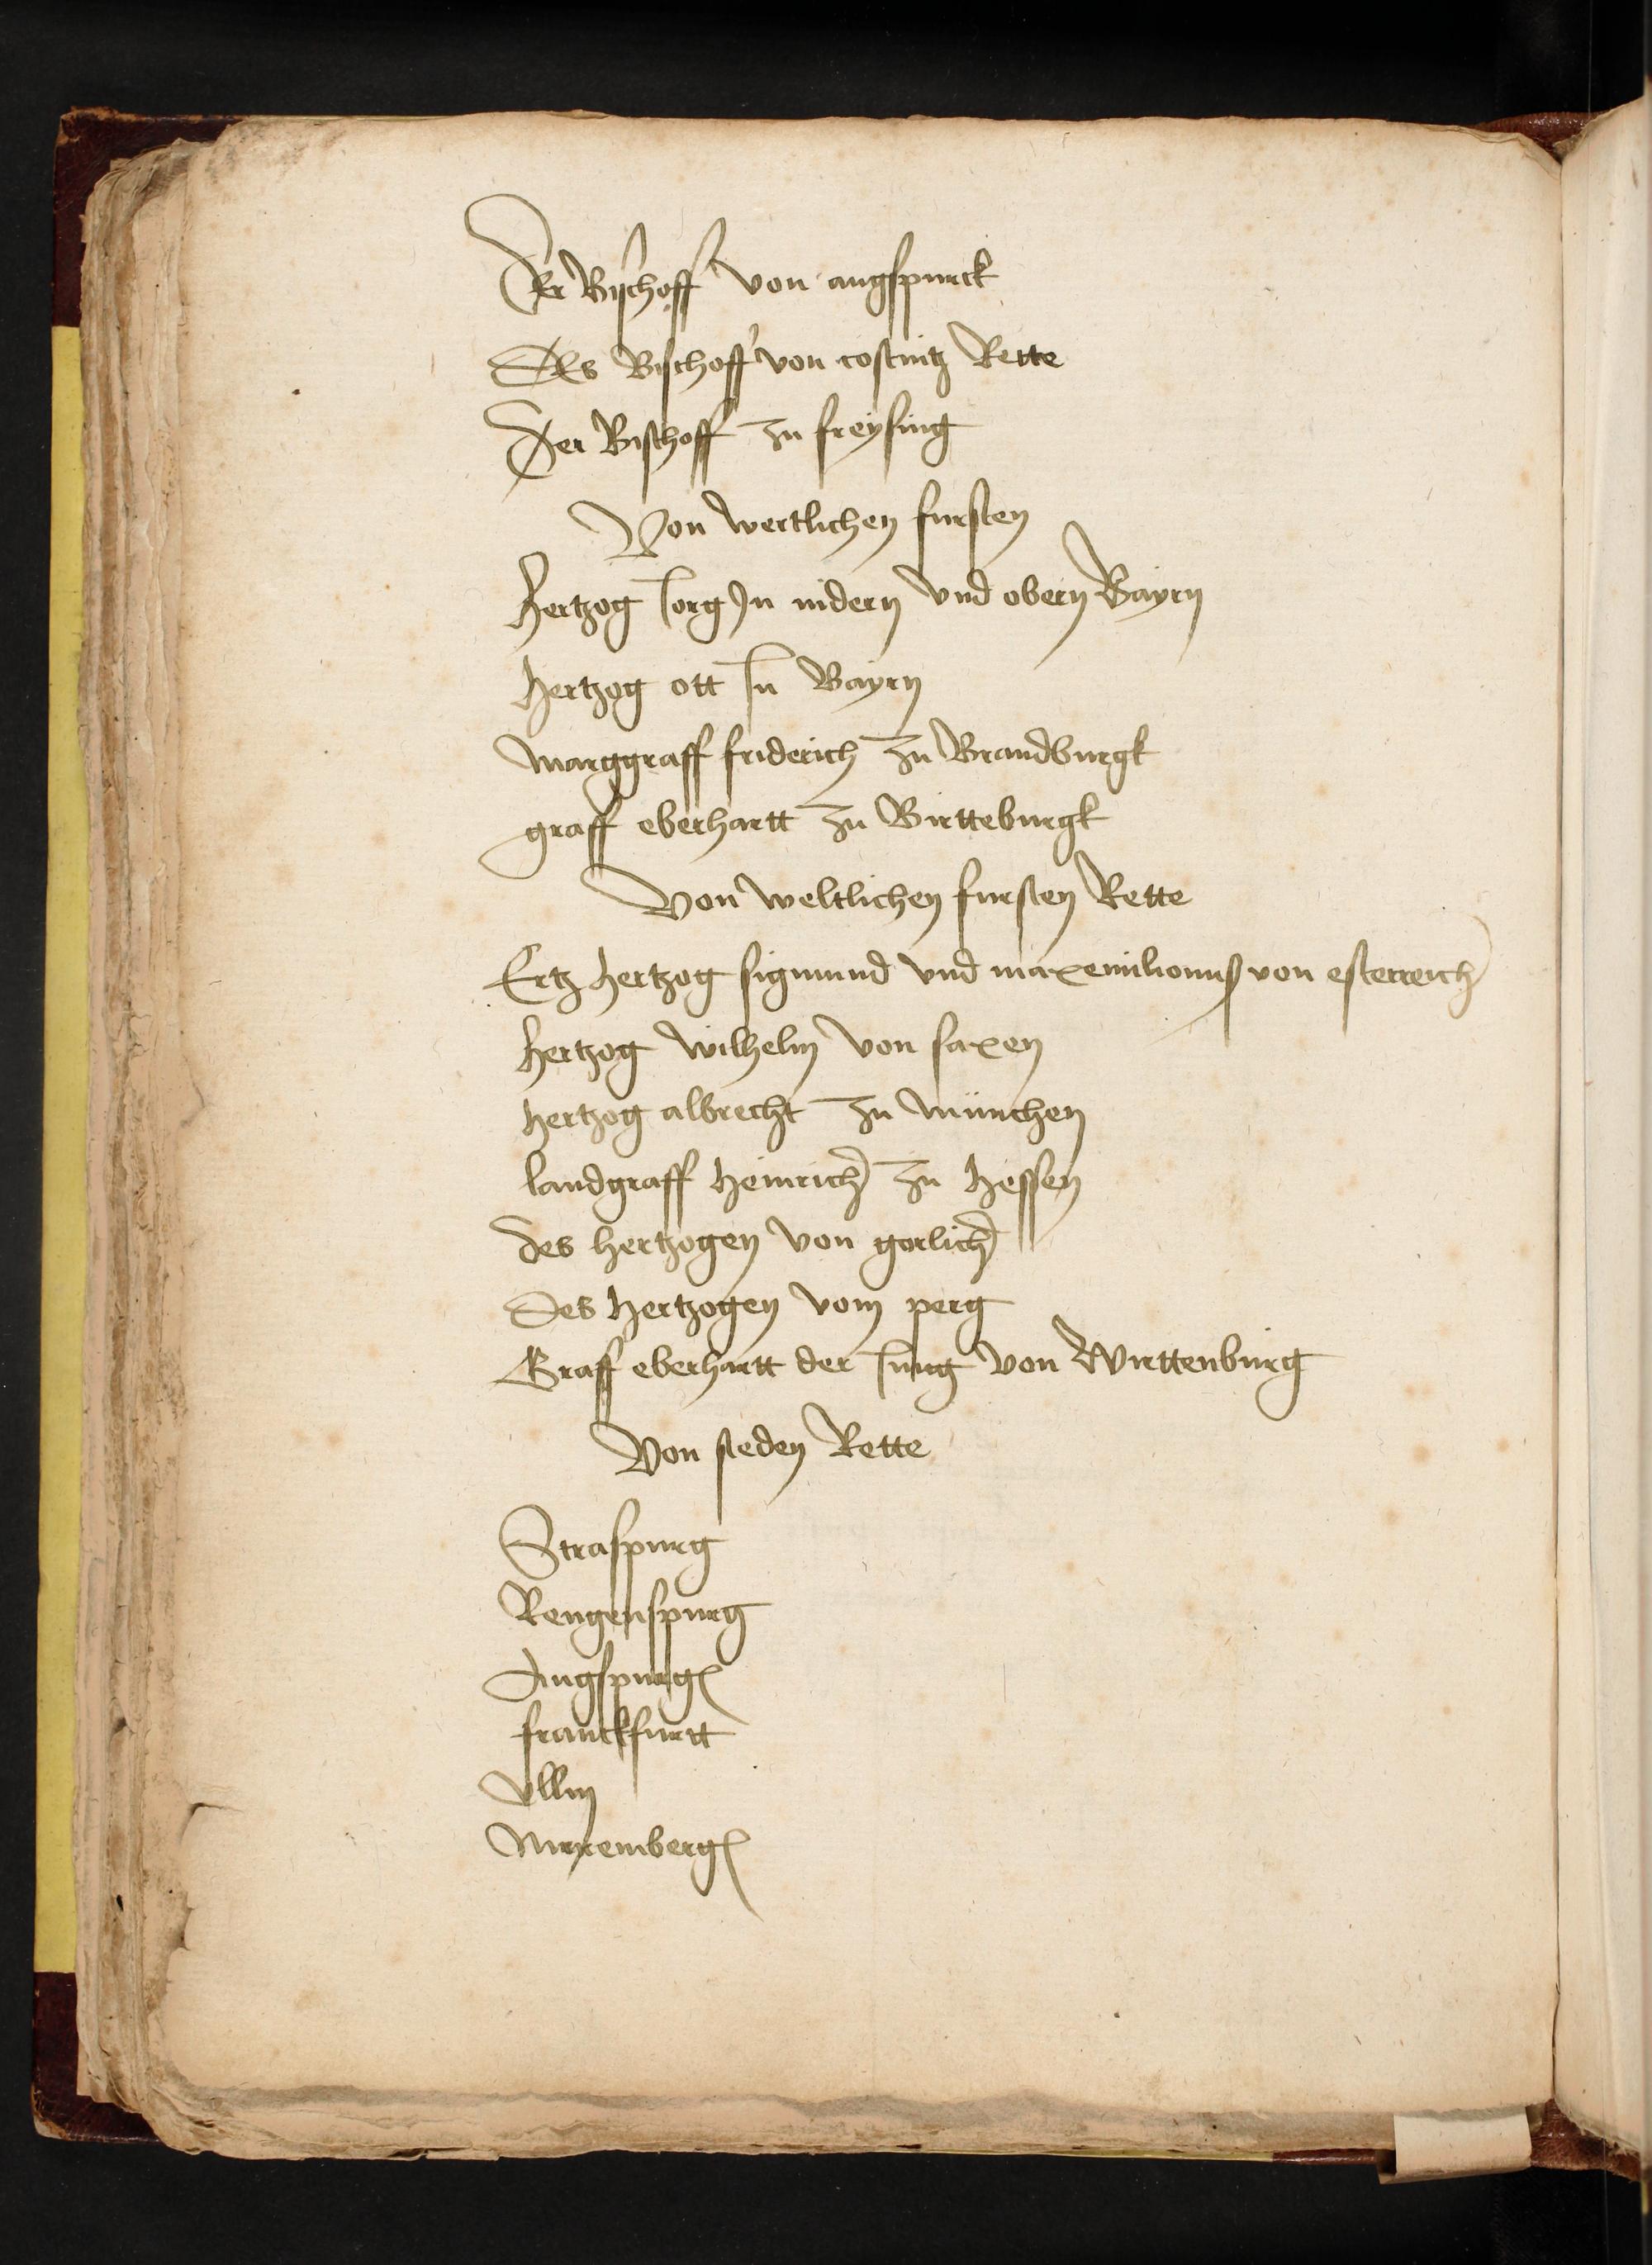 Der Bischoff von augspurck
Des Bischoff von costnitz Rette
Der Bischoff zu freysing
Von wertlichen fursten
Hertzog Jorg Jn nidern vnd obern Bayrn
Hertzog ott Jn Bayrn
Marggraff friderich zu Brandburgk
graff eberhartt zu Birtteburgk
Von weltlichen fursten Rette
Ertz hertzog sigmund vnd maxemilionus von esterreich
Hertzog Wilhelm von saxen
Hertzog albrecht zu München
landgraff Heinrich zu Hessen
des hertzogen von gorlich
Des Hertzogen vom perg
Graff eberhartt der Jung von Wirttenburg
Von steden Rette
Straspurg
Rengenspurg
Augspurg
franckfurtt
Vllm
Nuremberg